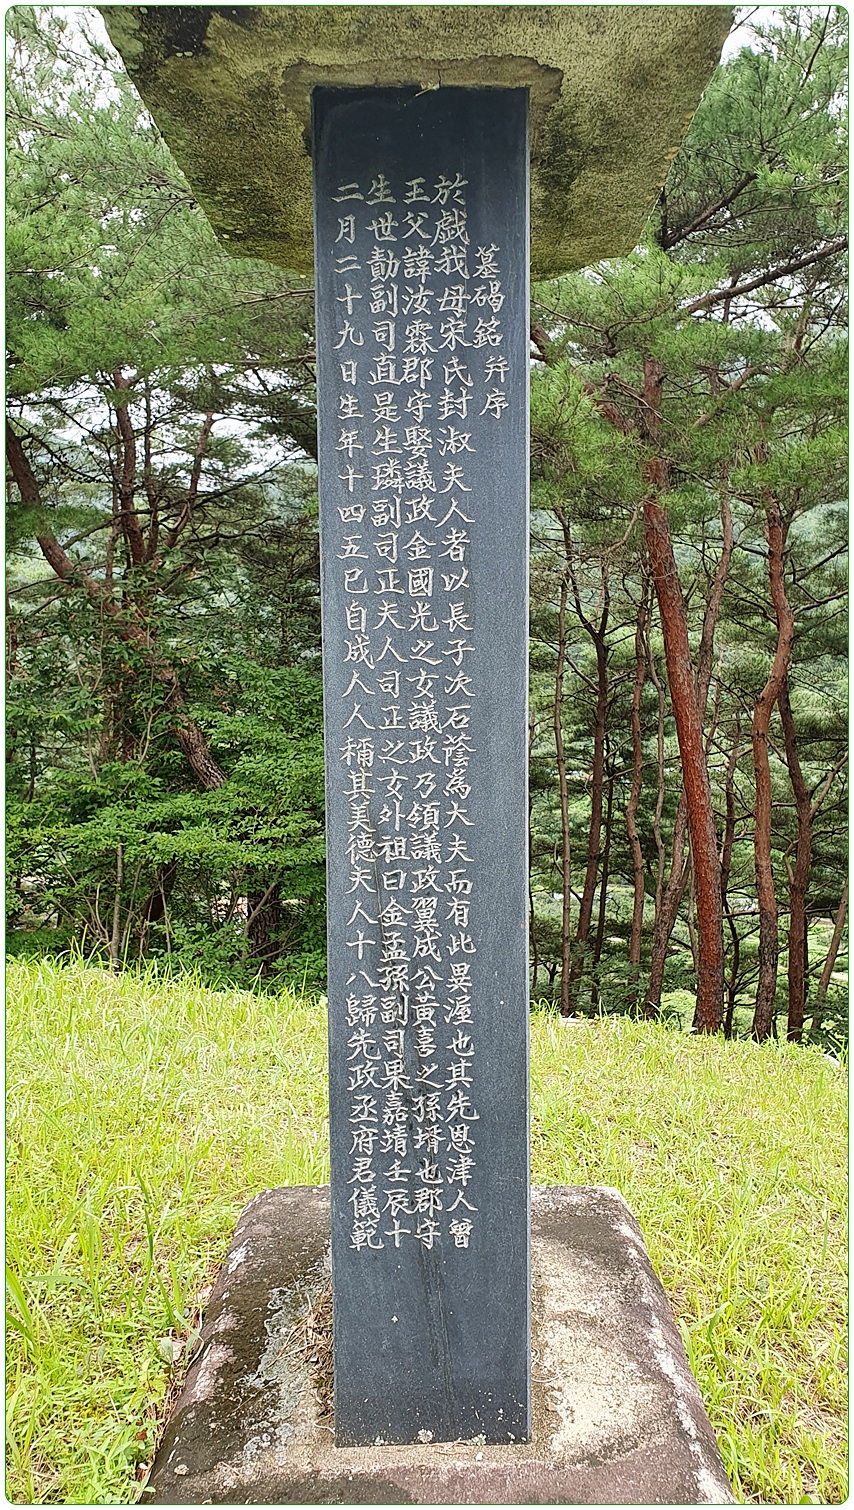 墓碣銘 幷序
於戱我母宋氏封淑夫人者以長子次石蔭爲大夫而有此異渥也其先恩津人曾
王父諱汝霖郡守娶議政金國光之女議政乃領議政翼成公黃喜之孫壻也郡守
生世勣副司直是生璘副司正夫人司正之女外祖曰金孟孫副司果嘉靖壬辰十
二月二十九日生年十四五已自成人人稱其美德夫人十八歸先政丞府君儀範